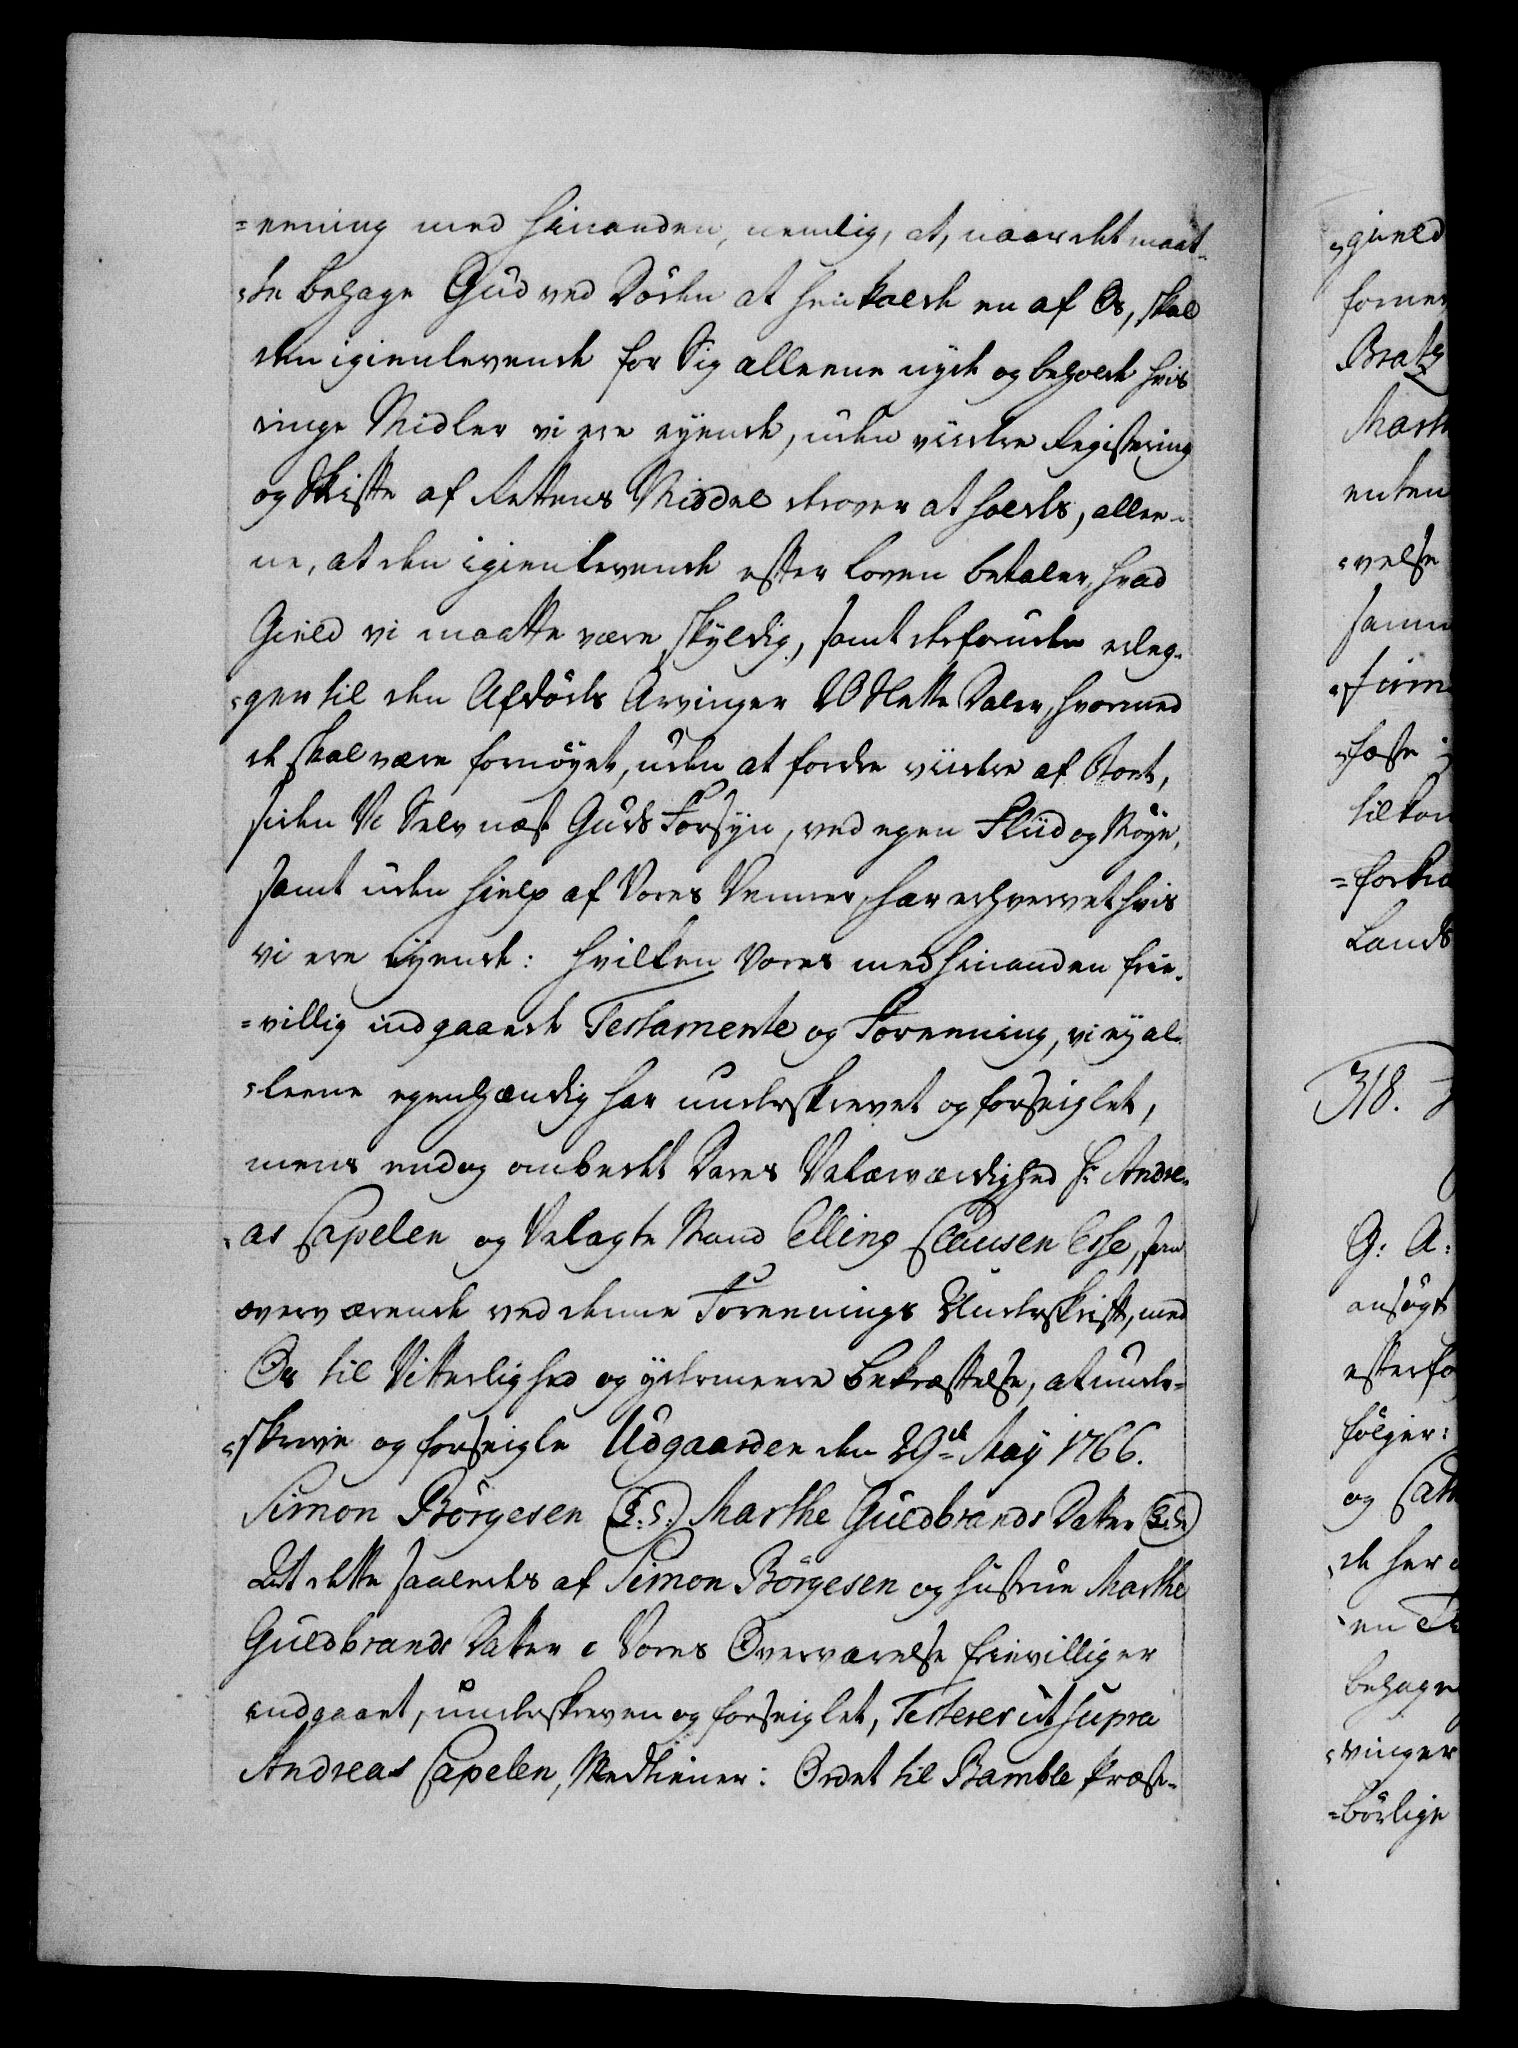 =eening med hinanden, nemlig, at, naar det maat-
=te behage Gud ved Döden at henkalde en af Os, skal
den igienlevende for Sig alleene nyde og beholde hvis
ringe Midler vi ere eyende, uden viidere Registering
og Skifte af Rettens Middel derover at holdes, allee-
ne, at den igienlevende efter Loven betaler, hvad
Gield vi maatte være skyldig, samt desforuden erleg-
=ger til den Afdödes Arvinger 20 Slette Daler, hvormed
de skal være fornöyet, uden at fordre viidere af Boet,
siden Vi Selv næst Guds Forsyn, ved egen Fliid og Möye,
samt uden hielp af Vores Venner, har erhvervet hvis
vi ere eyende: hvilken Vores med hinanden frie-
=villig indgaaede Testamente og Foreening, vi ey al-
=leene egenhændig har underskrevet og forseiglet,
mens endog ombedet Deres Velærværdighed Hr Andre-
=as Capelen og Velagte Mand Elling Clausen Esse, som
overværende ved denne Foreenings Underskrift, med
Os til Vitterlighed og ydermeere bekræftelse, at under-
=skrive og forseigle Udgaarden den 29de Maÿ 1766.
Simon Börgesen (L:S:) Marthe Guldbrands Datter (L:S:)
At dette saaledes af Simon Börgesen og hustrue Marthe
Guldbrands Datter i Vores Overværelse frievillig er
indgaaet, underskreven og forseiglet, Testerer ut supra
Andreas Capelen, Medtiener: Ordet til Bamble Præste-
=gield
Brats
enten
=velse
318.
G: A:
ansögt
fölger:
og
de her
behage
=vinger
=börlige